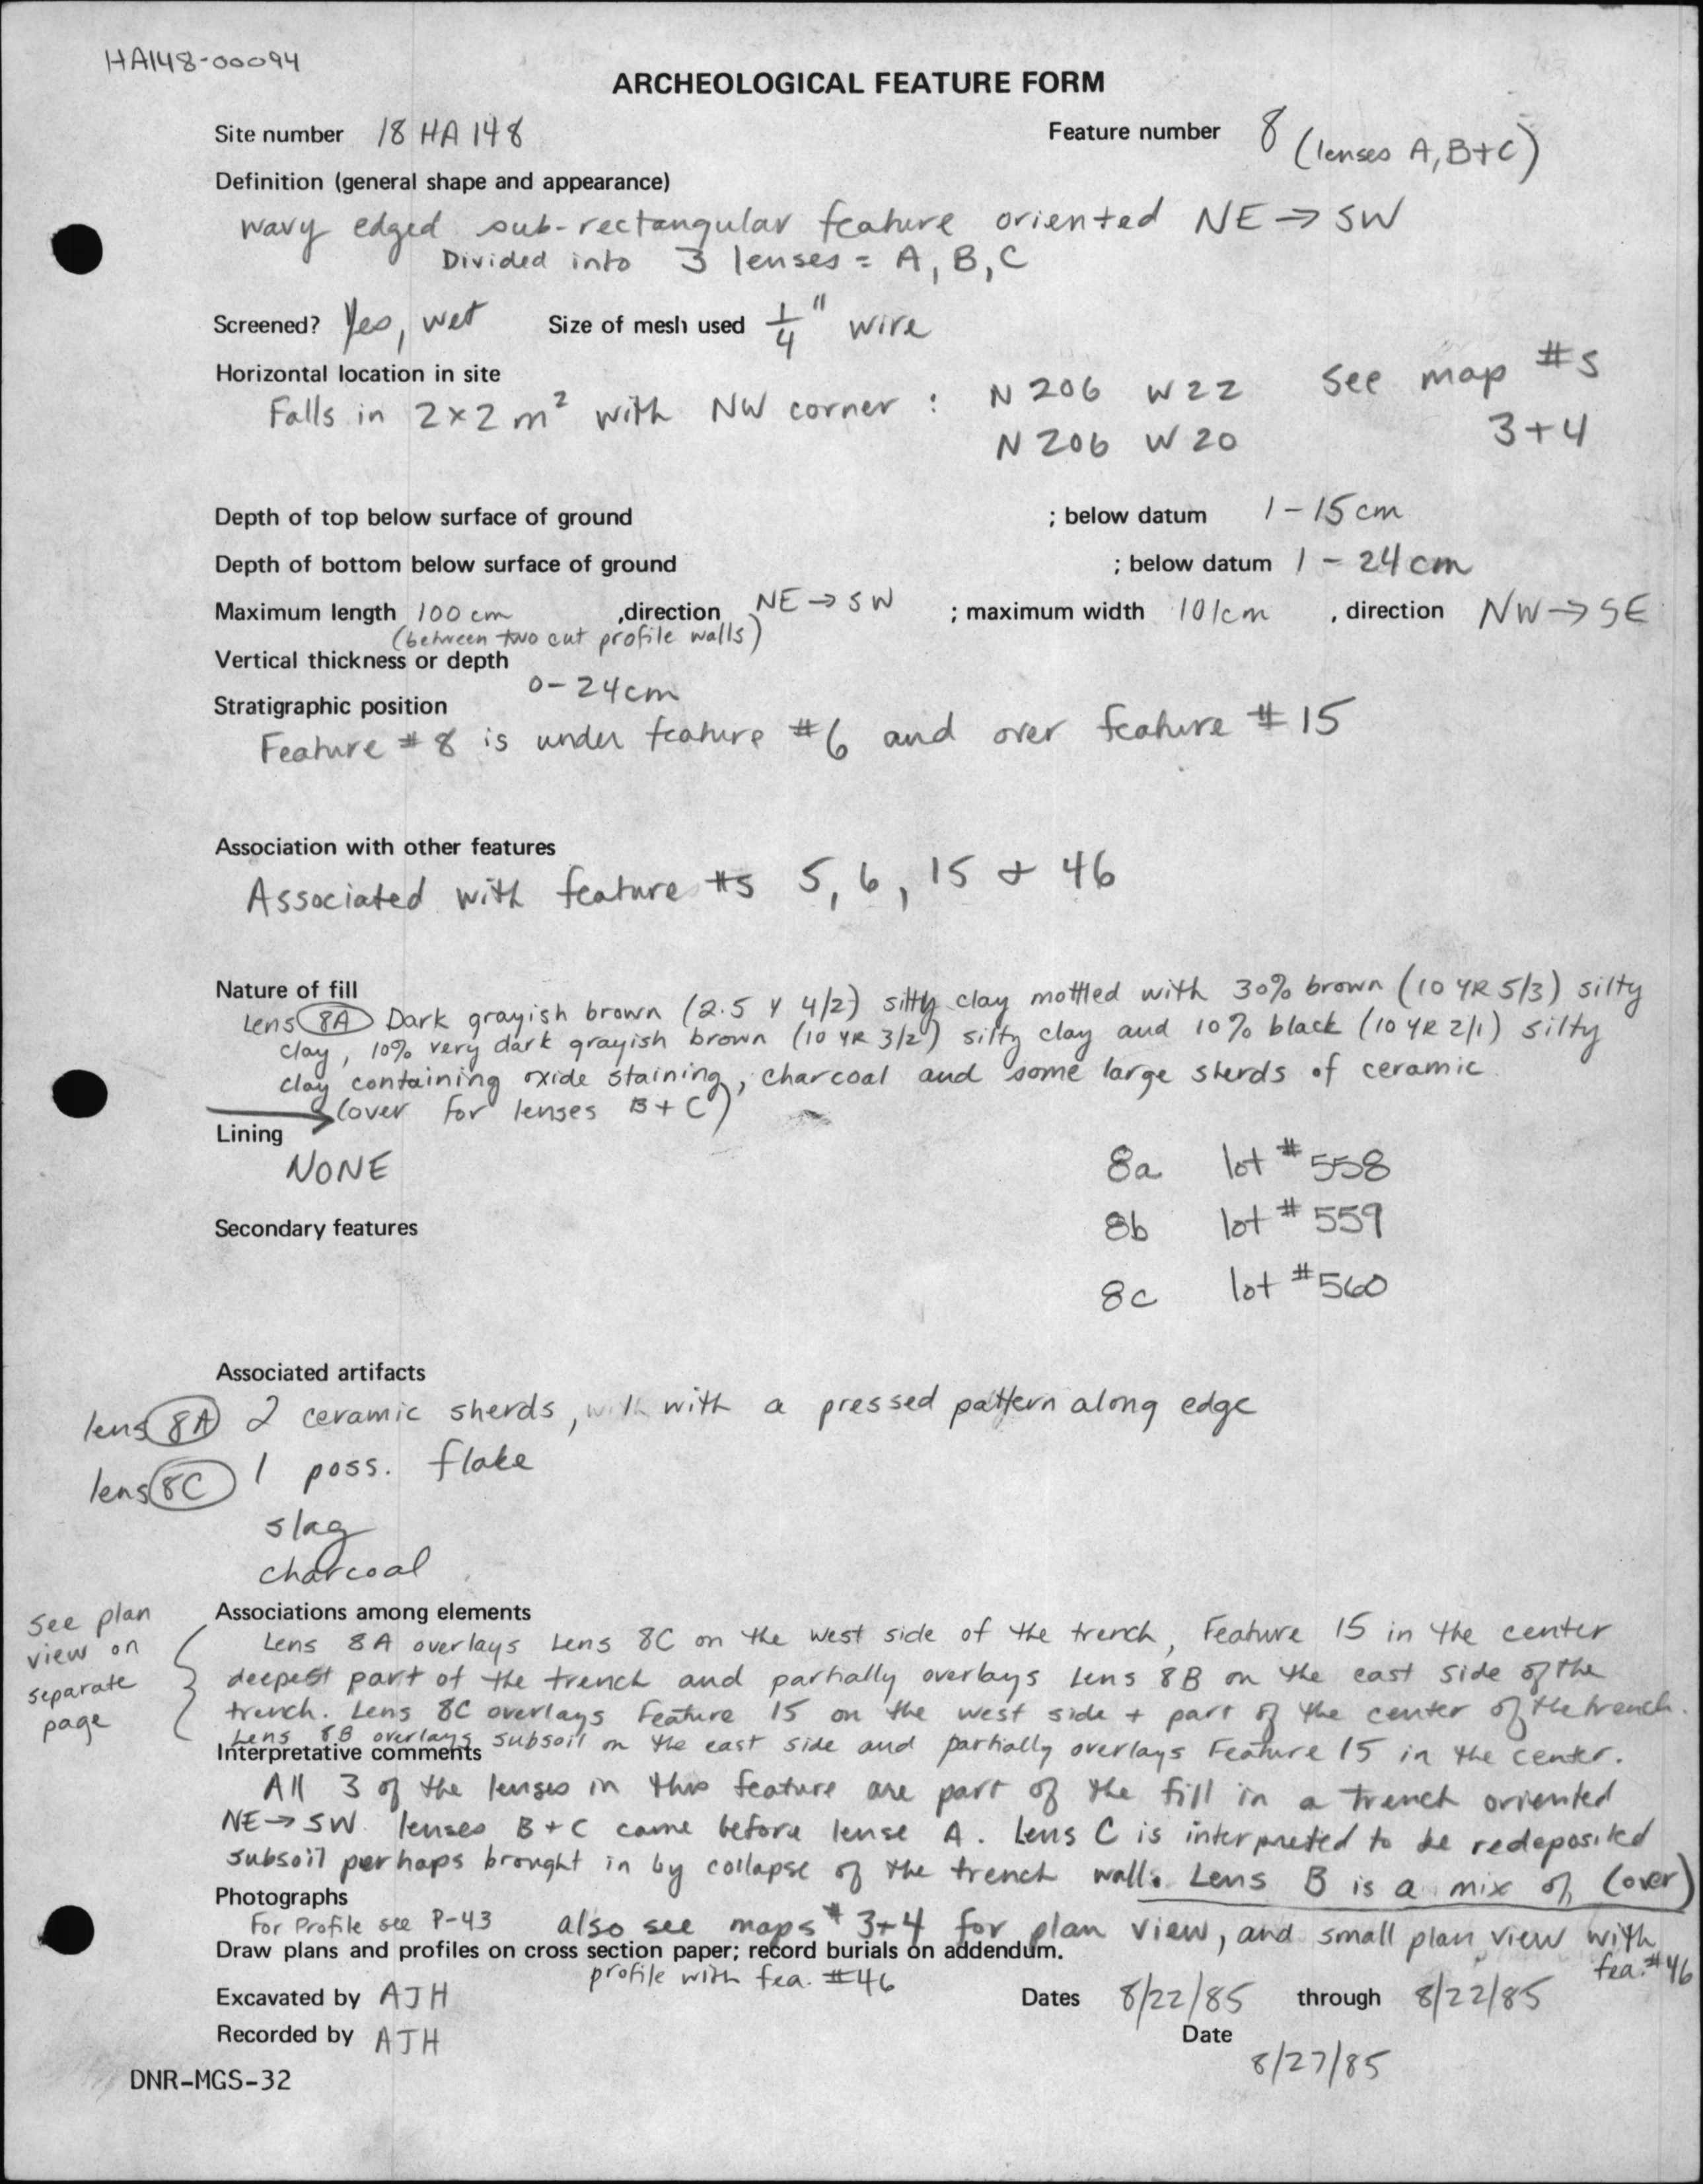 HA148-00094
ARCHEOLOGICAL FEATURE FORM
Site number 18 HA 148 Feature number 8 (lenses A, B+C)
Definition (general shape and appearance)
wavy edged sub-rectangular feature oriented NE → SW
Divided into 3 lenses = A, B, C
Screened? Yes, wet Size of mesh used 1/4" wire
Horizontal location in site
Falls in 2x2 m² with NW corner : N 206 W 22 See map #s
N 206 W 20 3+4
Depth of top below surface of ground ; below datum 1-15 cm
Depth of bottom below surface of ground ; below datum 1-24 cm
Maximum length 100 cm ,direction NE → SW ; maximum width 101cm , direction NW → SE
(between two cut profile walls)
Vertical thickness or depth
0-24cm
Stratigraphic position
Feature # 8 is under feature #6 and over feature # 15
Association with other features
Associated with feature #s 5, 6, 15 + 46
Nature of fill
Lens 8A Dark grayish brown (2.5 Y 4/2) silty clay mottled with 30% brown (10 YR 5/3) silty
clay, 10% very dark grayish brown (10 YR 3/2) silty clay and 10% black (10 YR 2/1) silty
clay containing oxide staining, charcoal and some large sherds of ceramic
→ (over for lenses B+C)
Lining
NONE
8a lot # 558
Secondary features
8b lot # 559
8c lot # 560
Associated artifacts
lens 8A 2 ceramic sherds, with a pressed pattern along edge
lens 8C 1 poss. flake
slag
charcoal
see plan
view on
separate
page
Associations among elements
Lens 8A overlays Lens 8C on the west side of the trench, Feature 15 in the center
deepest part of the trench and partially overlays Lens 8B on the east side of the
trench. Lens 8C overlays Feature 15 on the west side + part of the center of the trench.
Lens 8B overlays subsoil on the east side and partially overlays Feature 15 in the center.
Interpretative comments
All 3 of the lenses in this feature are part of the fill in a trench oriented
NE → SW. lenses B+C came before lense A. Lens C is interpreted to be redeposited
subsoil perhaps brought in by collapse of the trench walls. Lens B is a mix of (over)
Photographs
For Profile see P-43 also see maps # 3+4 for plan view, and small plan view with
fea. #46
Draw plans and profiles on cross section paper; record burials on addendum.
profile with fea. #46
Excavated by AJH Dates 8/22/85 through 8/22/85
Recorded by AJH Date
8/27/85
DNR-MGS-32